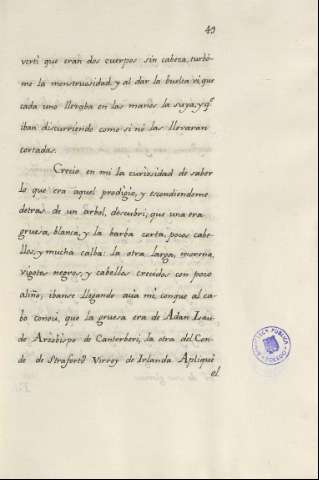 49
verti que eran dos cuerpos sin cabeza, turbó-
me la monstruosidad, y al dar la buelta vi que
cada uno llevaba en las manos la suya, y q.e
iban discurriendo como si nó las llevaran
cortadas.
Crecio en mi la curiosidad de saber
lo que era aquel prodigio, y escondiendome
detras de un arbol, descubri, que una era
gruesa, blanca, y la barba corta, pocos cabe-
llos, y mucha calba: la otra larga, morena,
vigotes negros, y cabellos crecidos con poco
aliño; ibanse llegando acia mi, conque al ca-
bo conoci, que la gruesa era de Adan Lau-
de Arzobispo de Canterberi, la otra del Con-
de de Straford Virrey de Irlanda Apliqué
el
BIBLIOTECA PUBLICA
TOLEDO